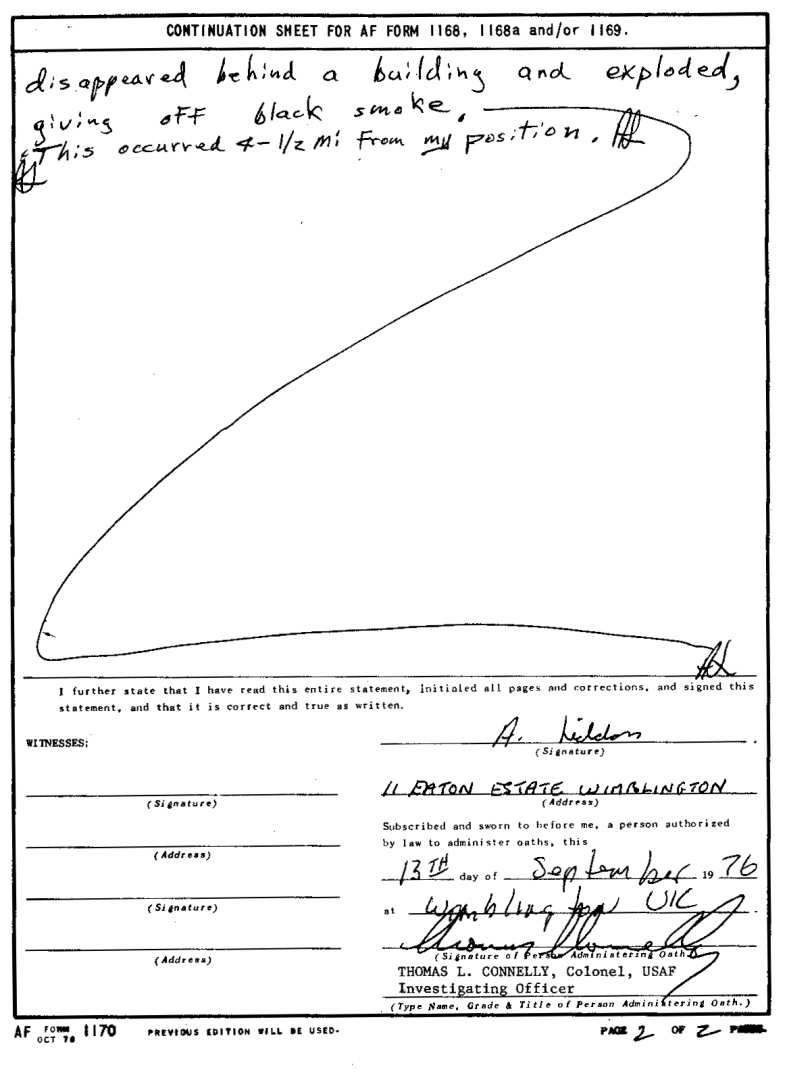 CONTINUATION SHEET FOR AF FORM 1168, 1168a and/or 1169.
disappeared behind a building and exploded,
giving off black smoke.
This occurred 4-1/2 mi from my position. AL
AL
AL
I further state that I have read this entire statement, initialed all pages and corrections, and signed this
statement, and that it is correct and true as written.
WITNESSES:
A. Liddon
(Signature)
11 EATON ESTATE WIMBLINGTON
(Signature)
(Address)
Subscribed and sworn to before me, a person authorized
by law to administer oaths, this
(Address)
13TH day of September 1976
(Signature)
at Wimblington UK
(Address)
(Signature of Person Administering Oath)
THOMAS L. CONNELLY, Colonel, USAF
Investigating Officer
(Type Name, Grade & Title of Person Administering Oath.)
AF FORM OCT 70 1170 PREVIOUS EDITION WILL BE USED. PAGE 2 OF 2 PAGES